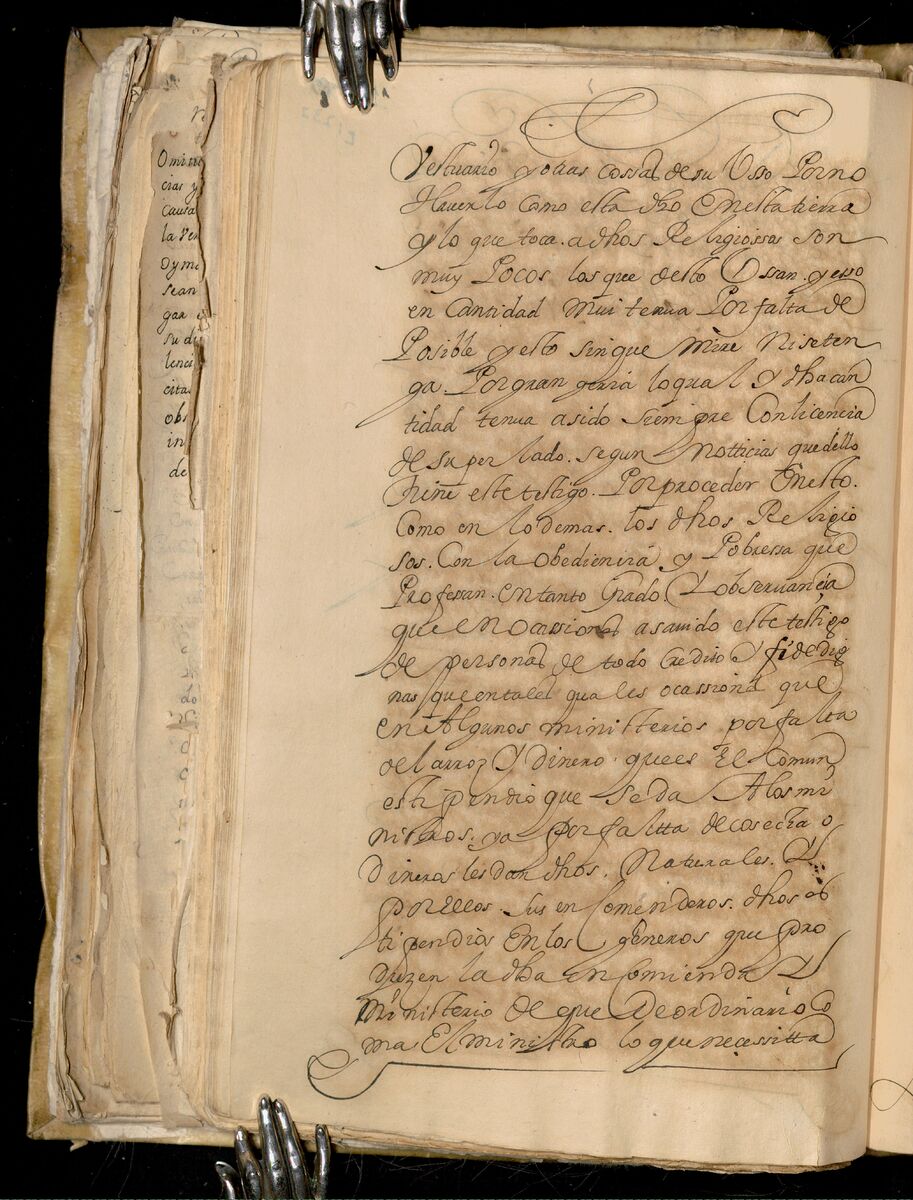 Omitie
cias y
causa
la ver
Oyma
sean
gar
su di
lenci
citas
obs
in
de
Vestuario y otras cossas de su Usso Por no
Haverlo como esta dho En esta tierra
y lo que toca. a dhos Religiossos son
muy Pocos los que desto Ussan. y esso
en Cantidad Mui tenua Por falta de
Posible y esto sin que mire Ni se ten
ga. Por gran geria lo qual Y dha can
tidad tenua a sido siempre Con licencia
de su perlado. segun Notticias que dello
tiene este testigo. Por proceder En esto.
Como en lo demas. los dhos Religio
sos. Con la obediencia y Pobressa que
Professan. en tanto Grado. Y observancia
que en ocassiones a savido este testigo
de personas de todo Credito Y fidedig
nas que en tales quales ocassiones que
en Algunos ministerios por falta
del arroz Y dinero. que es El Comun
estipendio que se da A los mi
nistros. ya por faltta de cosecha o
Dineros les dan dhos. Naturales. Y
por ellos. sus encomenderos. dhos es
tipendios En los generos que pro
duzen la dha encomienda Y
Ministerio de que De ordinario to
ma El ministro lo que necessitta